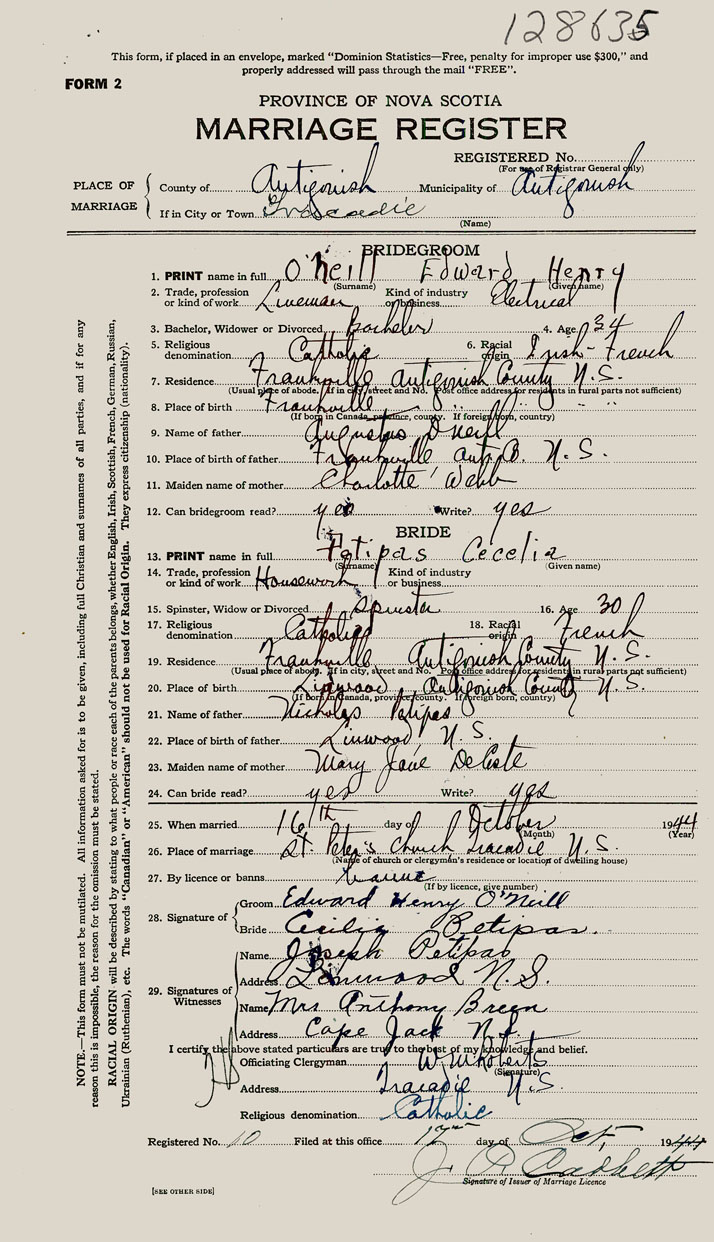 128635
This form, if placed in an envelope, marked "Dominion Statistics—Free, penalty for improper use $300," and
properly addressed will pass through the mail "FREE".
FORM 2
PROVINCE OF NOVA SCOTIA
MARRIAGE REGISTER
REGISTERED No.
(For use of Registrar General only)
PLACE OF MARRIAGE
County of Antigonish Municipality of Antigonish
If in City or Town Tracadie
(Name)
BRIDEGROOM
1. PRINT name in full O'Neill Edward Henry
(Surname) (Given name)
2. Trade, profession or kind of work Lineman Kind of industry or business Electrical
3. Bachelor, Widower or Divorced Bachelor 4. Age 34
5. Religious denomination Catholic 6. Racial origin Irish-French
7. Residence Frankville Antigonish County N.S.
(Usual place of abode. If in city, street and No. Post office address for residents in rural parts not sufficient)
8. Place of birth Frankville " " " "
(If born in Canada, province, county. If foreign born, country)
9. Name of father Augustus O'Neill
10. Place of birth of father Frankville N.S.
11. Maiden name of mother Charlotte Webb
12. Can bridegroom read? yes Write? yes
BRIDE
13. PRINT name in full Petipas Cecelia
(Surname) (Given name)
14. Trade, profession or kind of work Housework Kind of industry or business
15. Spinster, Widow or Divorced Spinster 16. Age 30
17. Religious denomination Catholic 18. Racial origin French
19. Residence Frankville Antigonish County N.S.
(Usual place of abode. If in city, street and No. Post office address for residents in rural parts not sufficient)
20. Place of birth Linwood Antigonish County N.S.
(If born in Canada, province, county. If foreign born, country)
21. Name of father Nicholas Petipas
22. Place of birth of father Linwood N.S.
23. Maiden name of mother Mary Jane DeCoste
24. Can bride read? yes Write? yes
25. When married 16th day of October 1944
(Month) (Year)
26. Place of marriage St. Peter's Church Tracadie N.S.
(Name of church or clergyman's residence or location of dwelling house)
27. By licence or banns banns
(If by licence, give number)
28. Signature of
Groom Edward Henry O'Neill
Bride Cecilia Petipas.
29. Signatures of Witnesses
Name Joseph Petipas
Address Linwood N.S.
Name Mrs Anthony Breen
Address Cape Jack N.S.
I certify the above stated particulars are true to the best of my knowledge and belief.
Officiating Clergyman
(Signature)
Address Tracadie N.S.
Religious denomination Catholic
Registered No. 10 Filed at this office 17th day of Oct, 1944
Signature of Issuer of Marriage Licence
[SEE OTHER SIDE]
NOTE.—This form must not be mutilated. All information asked for is to be given, including full Christian and surnames of all parties, and if for any
reason this is impossible, the reason for the omission must be stated.
RACIAL ORIGIN will be described by stating to what people or race each of the parents belongs, whether English, Irish, Scottish, French, German, Russian,
Ukrainian (Ruthenian), etc. The words "Canadian" or "American" should not be used for Racial Origin. They express citizenship (nationality).